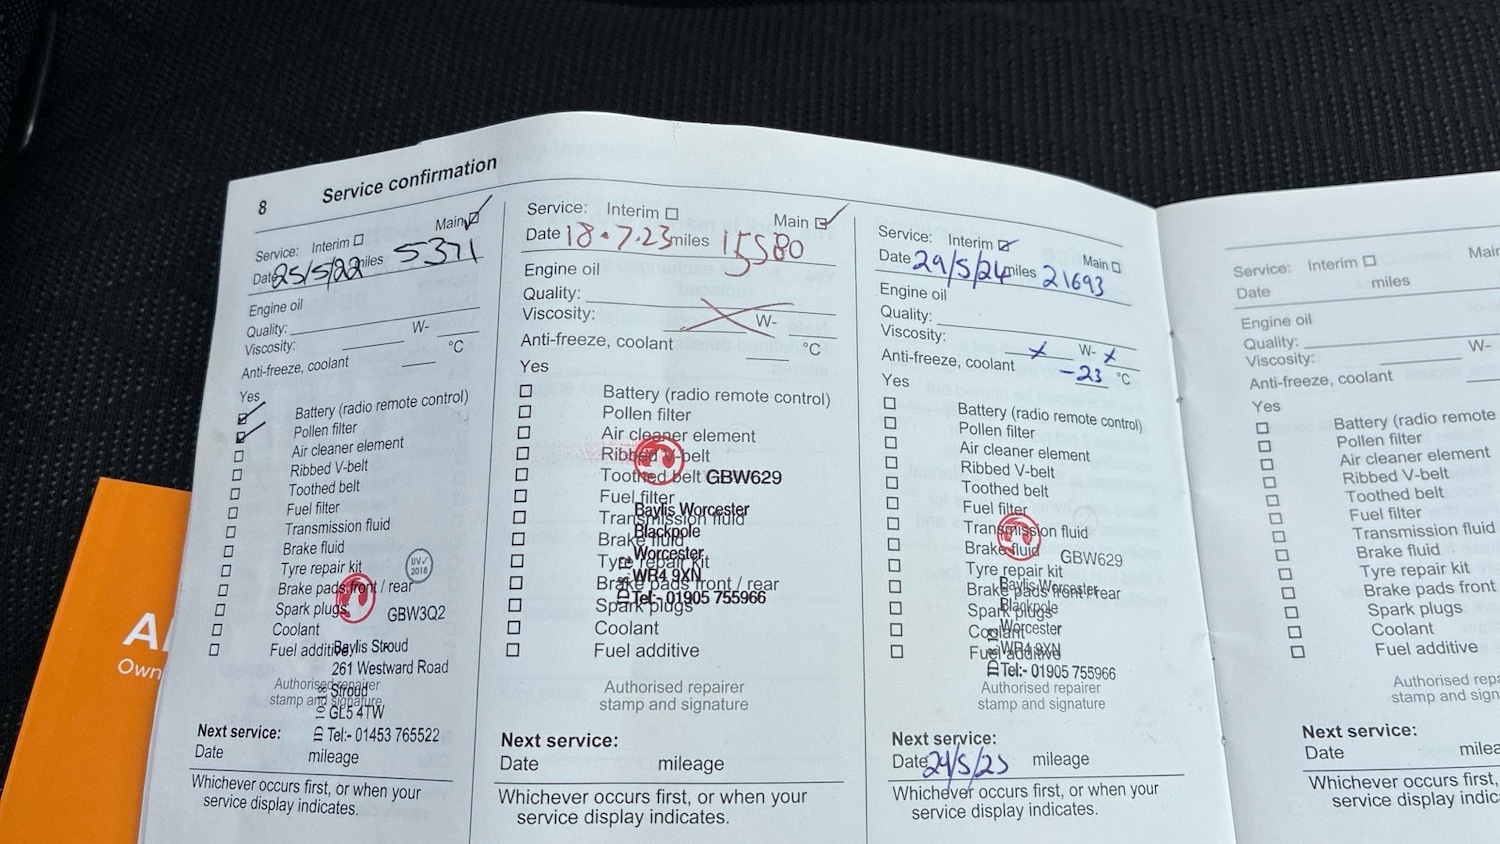 8 Service confirmation
Service: Interim Main
Date 25/5/22 miles 5371
Engine oil
Quality:
Viscosity: W-
Anti-freeze, coolant °C
Yes
Battery (radio remote control)
Pollen filter
Air cleaner element
Ribbed V-belt
Toothed belt
Fuel filter
Transmission fluid
Brake fluid
Tyre repair kit
UV✓
2018
Brake pads front / rear
Spark plugs
GBW3Q2
Coolant
Fuel additive
Baylis Stroud
261 Westward Road
Authorised repairer
stamp and signature
Stroud
GL5 4TW
Tel:- 01453 765522
Next service:
Date mileage
Whichever occurs first, or when your
service display indicates.
Service: Interim Main
Date 18.7.23 miles 15580
Engine oil
Quality:
Viscosity: W-
Anti-freeze, coolant °C
Yes
Battery (radio remote control)
Pollen filter
Air cleaner element
Ribbed V-belt
Toothed belt
GBW629
Fuel filter
Baylis Worcester
Transmission fluid
Blackpole
Brake fluid
Worcester
Tyre repair kit
WR4 9XN
Brake pads front / rear
Tel:- 01905 755966
Spark plugs
Coolant
Fuel additive
Authorised repairer
stamp and signature
Next service:
Date mileage
Whichever occurs first, or when your
service display indicates.
Service: Interim Main
Date 29/5/24 miles 21693
Engine oil
Quality:
Viscosity: x W- x
Anti-freeze, coolant -23 °C
Yes
Battery (radio remote control)
Pollen filter
Air cleaner element
Ribbed V-belt
Toothed belt
Fuel filter
Transmission fluid
Brake fluid
GBW629
Tyre repair kit
Brake pads front / rear
Baylis Worcester
Spark plugs
Blackpole
Coolant
Worcester
Fuel additive
WR4 9XN
Tel:- 01905 755966
Authorised repairer
stamp and signature
Next service:
Date 29/5/25 mileage
Whichever occurs first, or when your
service display indicates.
Service: Interim Main
Date miles
Engine oil
Quality:
Viscosity: W-
Anti-freeze, coolant
Yes
Battery (radio remote
Pollen filter
Air cleaner element
Ribbed V-belt
Toothed belt
Fuel filter
Transmission fluid
Brake fluid
Tyre repair kit
Brake pads front
Spark plugs
Coolant
Fuel additive
Authorised
stamp and
Next service:
Date
Whichever occurs first,
service display